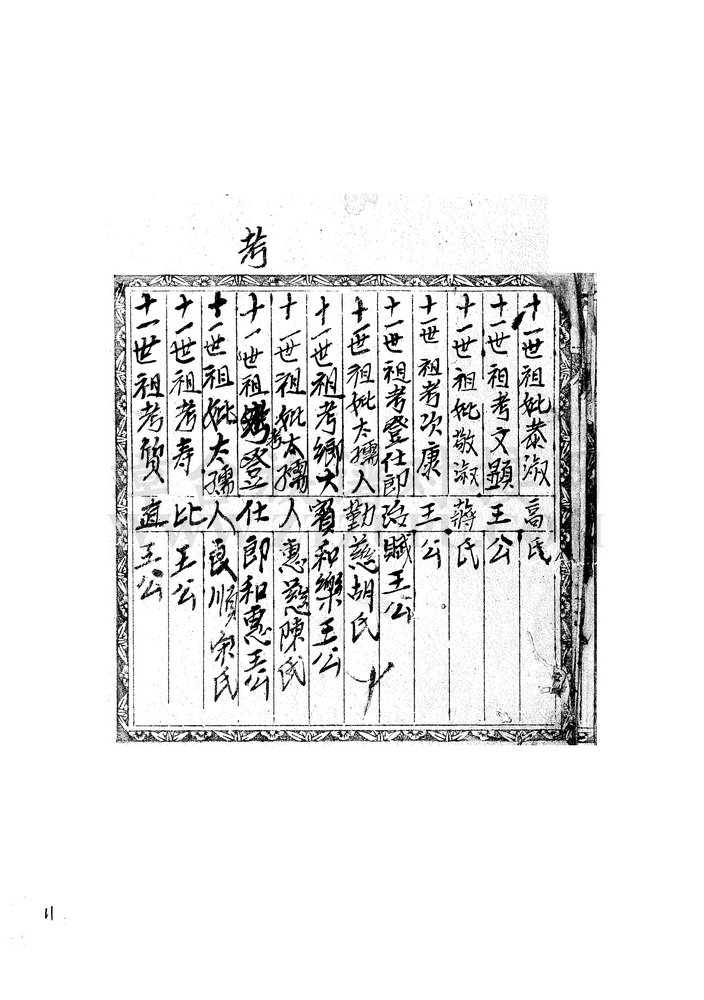 考
十一世祖妣恭淑高氏
十一世祖考文顯王公
十一世祖妣敬淑蔣氏
十一世祖考次康王公
十一世祖考登仕郎 賦王公
十一世祖妣太孺人勤慈胡氏
十一世祖考鄉大賓和樂王公
十一世祖妣太孺人惠慈陳氏
十一世祖考登仕郎和惠王公
十一世祖妣太孺人良順宋氏
十一世祖考寿比王公
十一世祖考質直王公
11